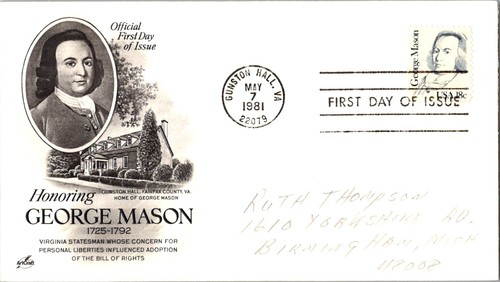 Official
First Day
of Issue
Honoring
GUNSTON HALL, FAIRFAX COUNTY, VA.
HOME OF GEORGE MASON
GEORGE MASON
1725-1792
VIRGINIA STATESMAN WHOSE CONCERN FOR
PERSONAL LIBERTIES INFLUENCED ADOPTION
OF THE BILL OF RIGHTS
ArtCraft
GUNSTON HALL, VA
MAY
7
1981
22079
FIRST DAY OF ISSUE
George Mason
USA 18c
RUTH THOMPSON
1610 YORKSHIRE RD.
BIRMINGHAM, MICH
48008